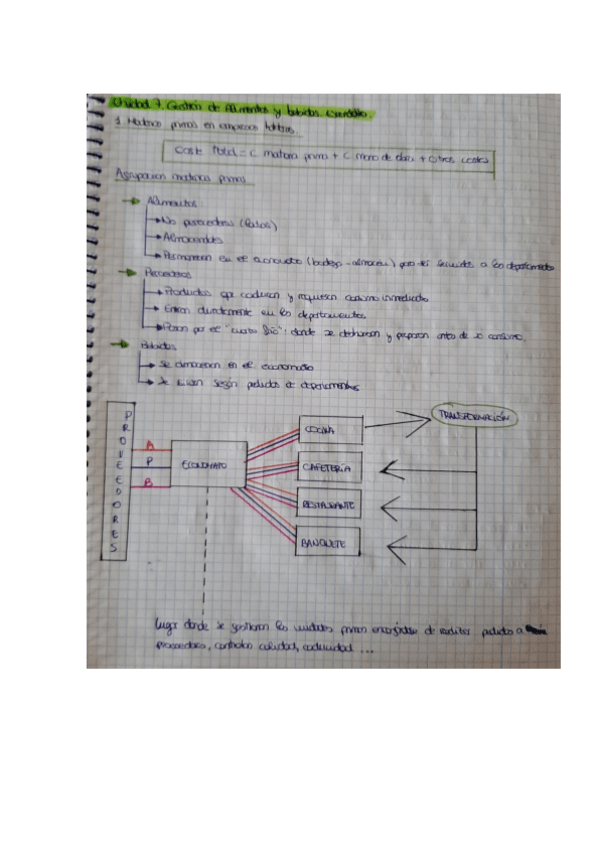 Unidad 7. Gestión de Alimentos y bebidas.
1. Materias primas en empresas
Coste total = C materia prima + C mano de obra + Otros costes
Agrupación materias primas
Alimentos:
No perecederos (Secos)
Almacenables
Permanecen en el economato (bodega - almacén) para ser servidos a los departamentos
Perecederos
Productos que caducan y requieren consumo inmediato
Entran directamente en los departamentos
Pasan por el "cuarto frío": donde se y preparan antes de su consumo.
Bebidas
Se almacenan en el economato
Se sirven según pedidos de departamentos
PROVEEDORES
A
P
B
ECONOMATO
COCINA
CAFETERIA
RESTAURANTE
BANQUETE
TRANSFORMACIÓN
Lugar donde se gestionan las primas de realizar pedidos a
proveedores, controlar calidad, caducidad ...